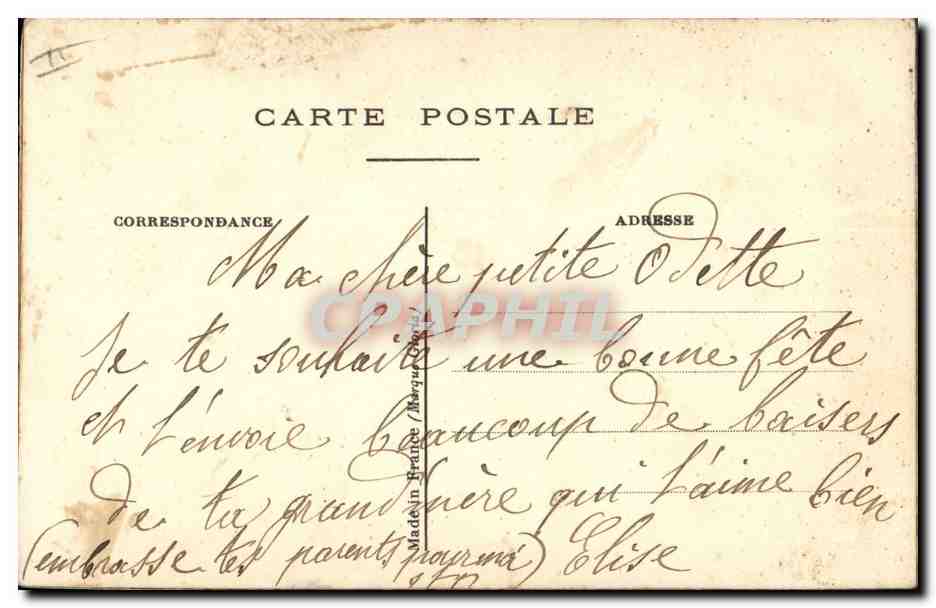 CARTE POSTALE
CORRESPONDANCE
ADRESSE
Ma chère petite Odette
CPAPHIL
Je te souhaite une bonne fête
et t'envoie beaucoup de baisers
de ta grand'mère qui t'aime bien
(embrasse tes parents pour moi) Elise
Made in France (Marque Gloria)